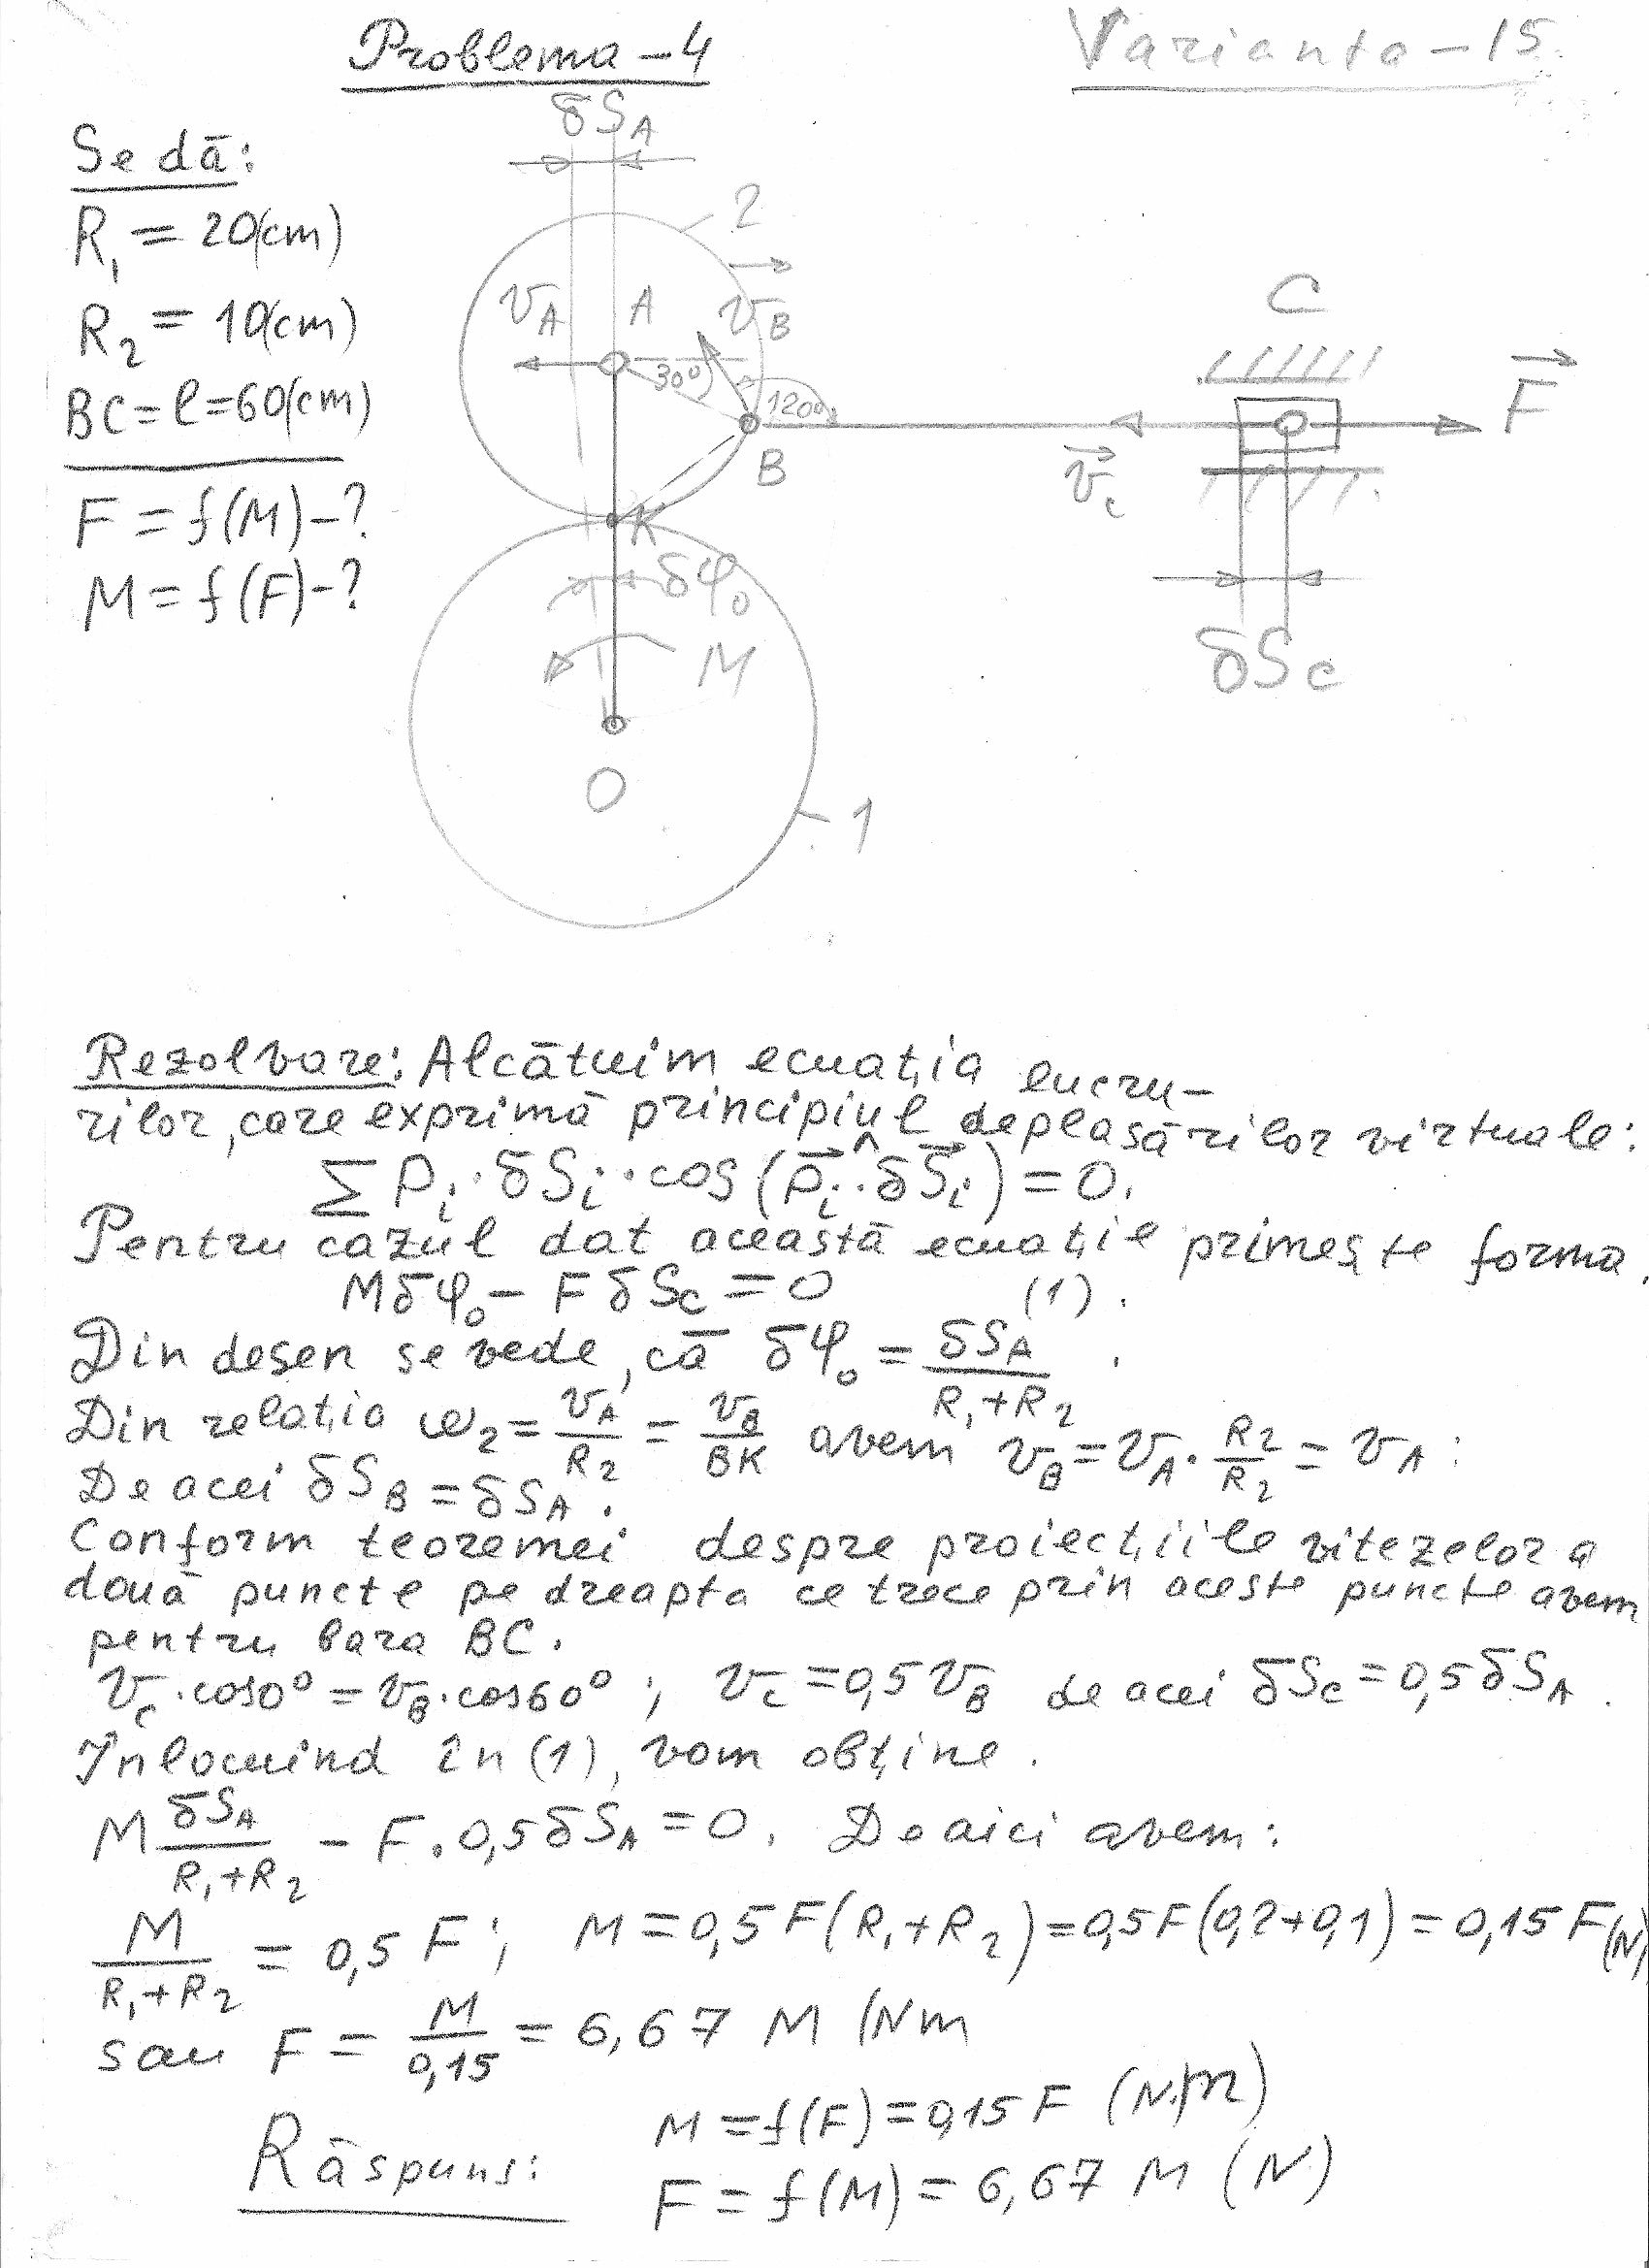 Problema-4
Varianta-15
δSA
Se dă:
R1 = 20(cm)
R2 = 10(cm)
BC=l=60(cm)
F = f(M)-?
M = f(F)-?
2
vA
A
vB
30°
120°
B
K
δφ0
M
O
1
C
F
vc
δSc
Rezolvare: Alcătuim ecuația lucru-
rilor, care exprimă principiul deplasărilor virtuale:
∑ Pi · δSi · cos (Pi ^· δSi) = 0.
Pentru cazul dat această ecuație primește forma.
Mδφ0 - F δSc = 0 (1).
Din desen se vede, că δφ0 = δSA / (R1+R2) .
Din relația ω2 = vA/R2 = vB/BK avem vB = vA · R2/R2 = vA :
De acei δSB = δSA .
Conform teoremei despre proiecțiile vitezelor a
două puncte pe dreapta ce trece prin aceste puncte avem
pentru bara BC.
vc · cos0° = vB · cos60° ; vc = 0,5 vB de acei δSc = 0,5 δSA .
Înlocuind în (1), vom obține .
M δSA/(R1+R2) - F · 0,5 δSA = 0. De aici avem:
M/(R1+R2) = 0,5 F ; M = 0,5 F (R1+R2) = 0,5F (0,2+0,1) = 0,15 F (N)
sau F = M/0,15 = 6,67 M (Nm
Răspuns:
M = f(F) = 0,15 F (N·m)
F = f(M) = 6,67 M (N)